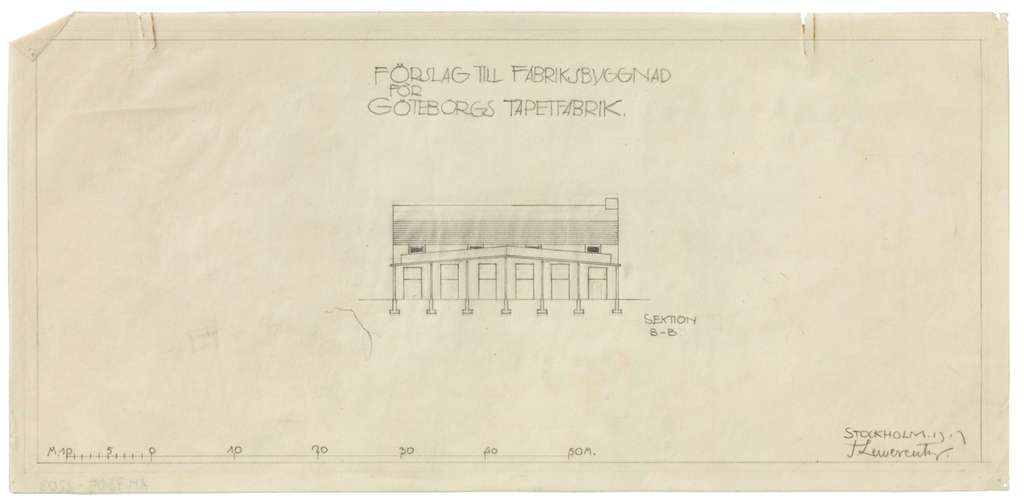 FÖRSLAG TILL FABRIKSBYGGNAD
FÖR
GÖTEBORGS TAPETFABRIK.
SEKTION
B-B.
M.10 5 0 10 20 30 40 50M.
STOCKHOLM.
S Lewerentz.